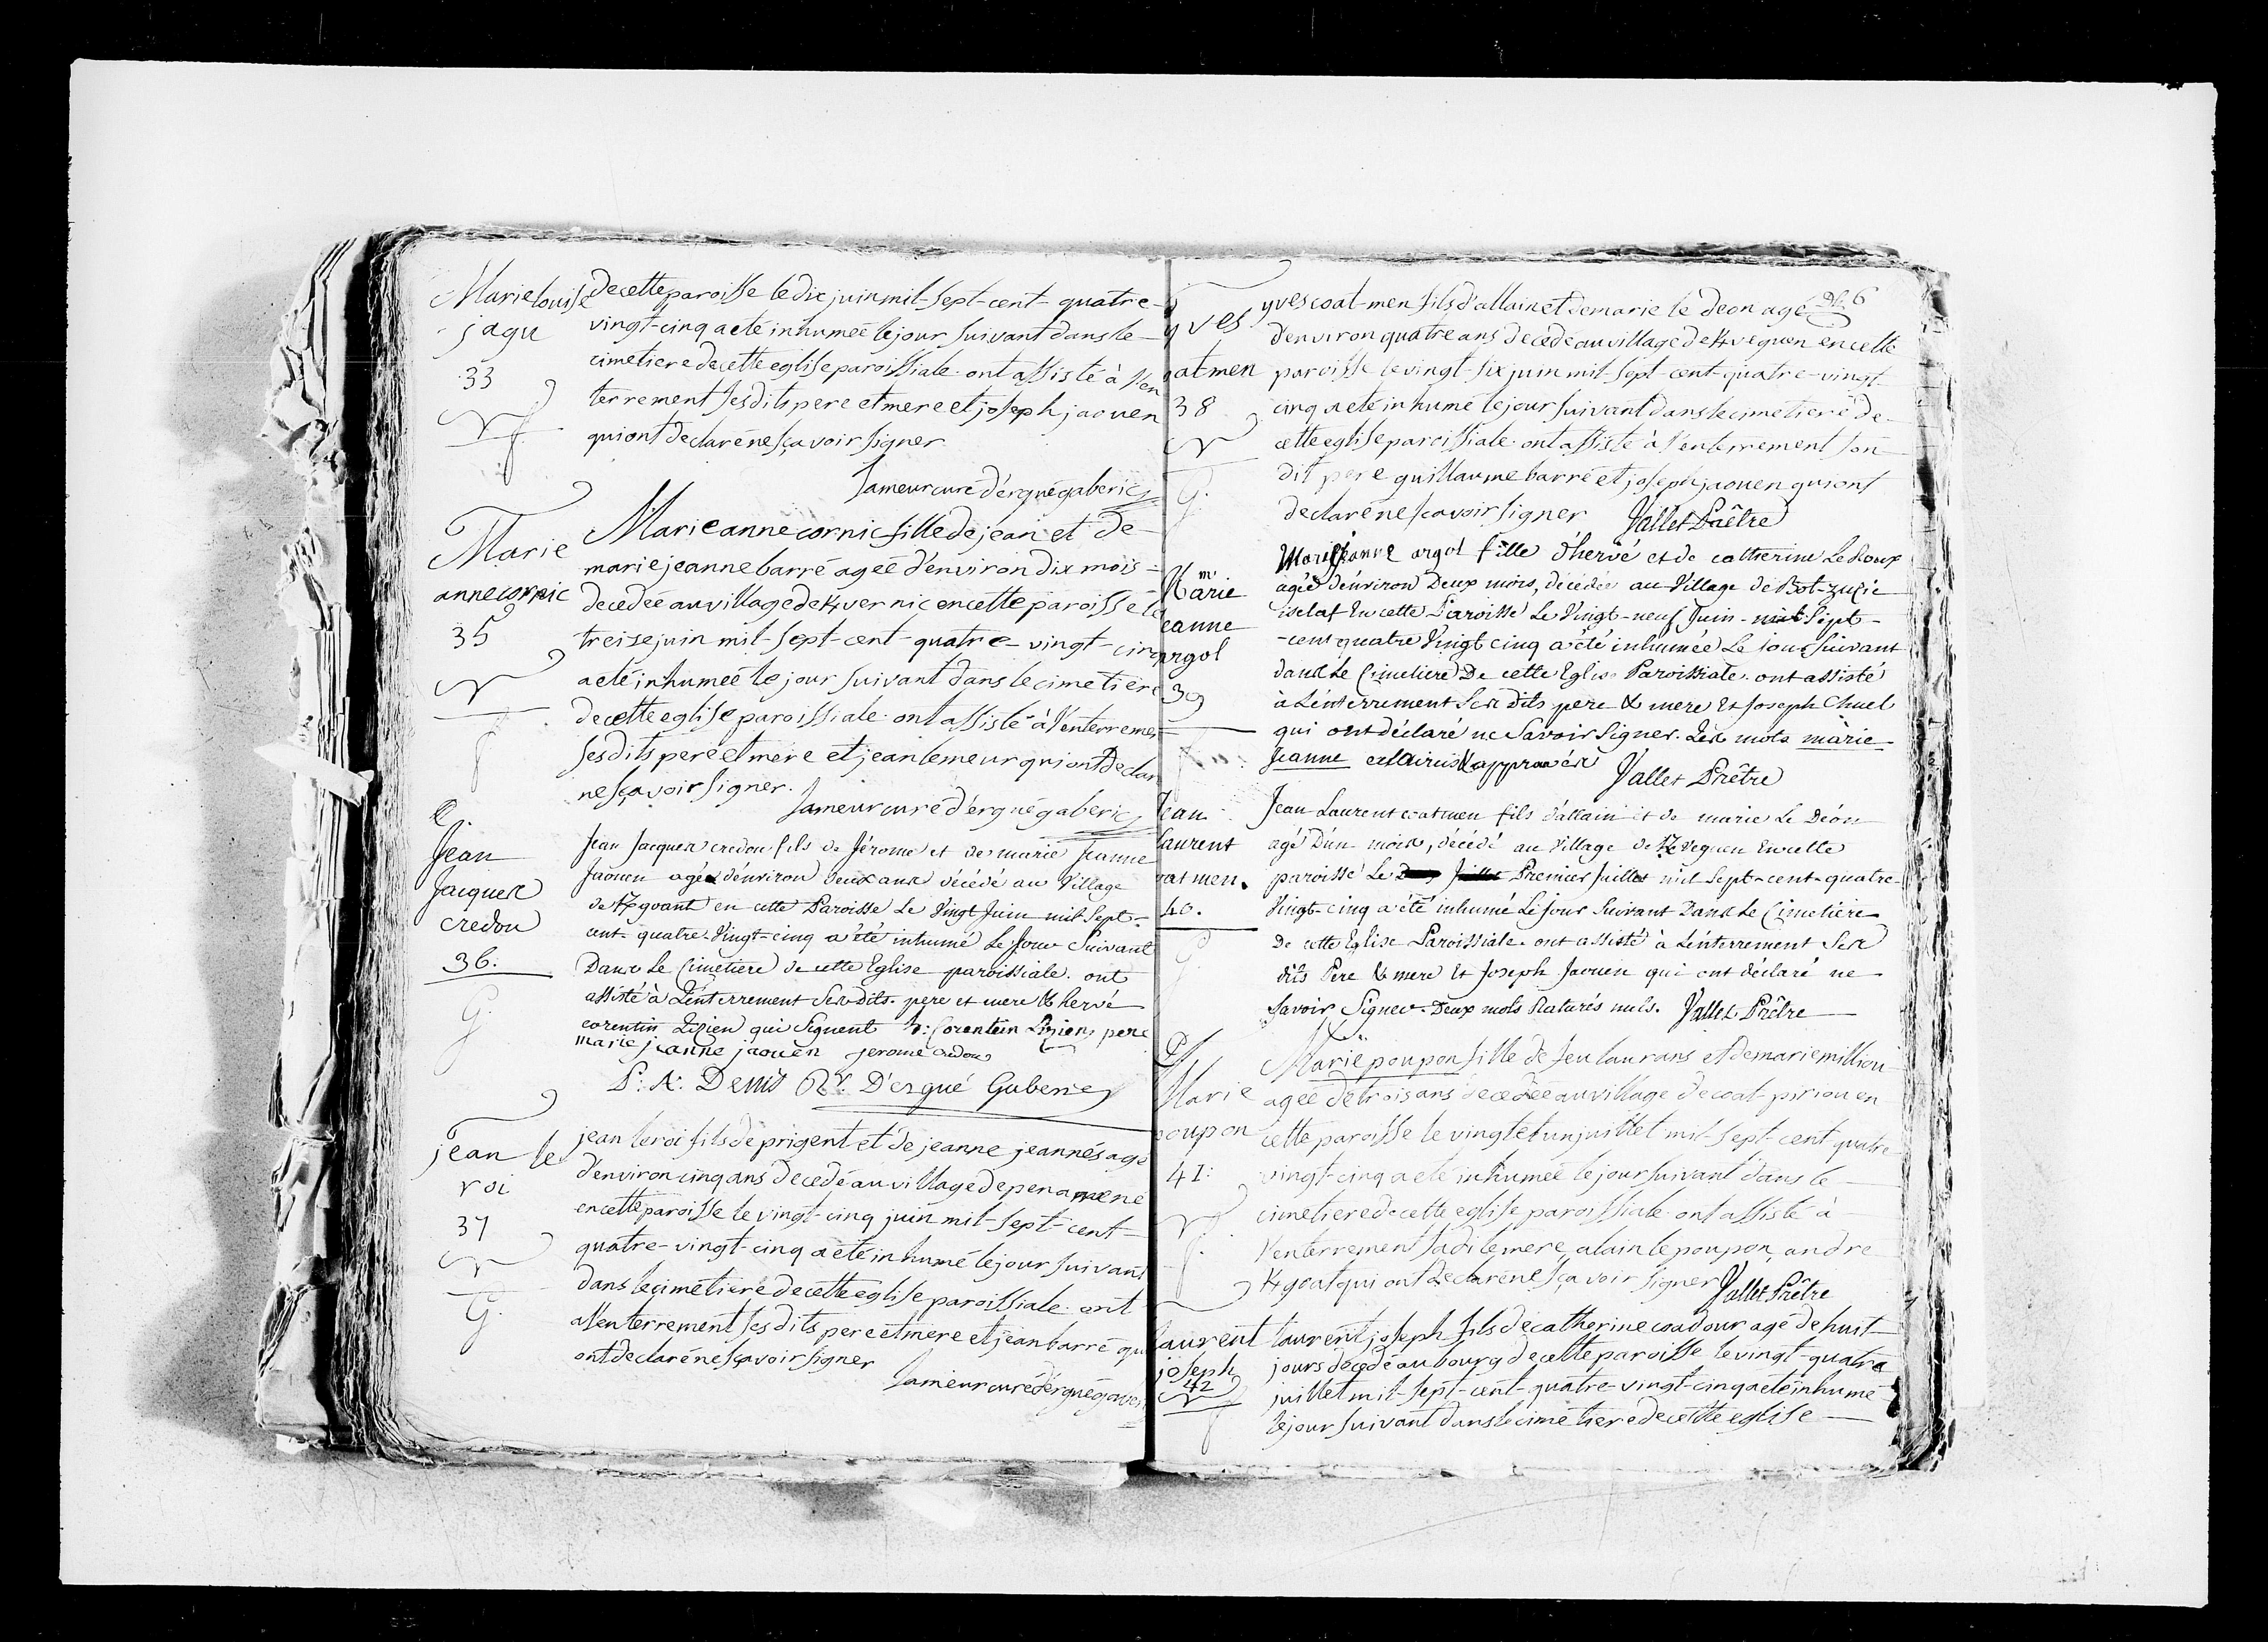 Marie louise
jagu
33
de cette paroisse le dix juin mil-sept-cent-quatre-
vingt-cinq a eté inhumeé le jour suivant dans le
cimetiere de cette eglise paroissiale. ont assisté à l'en
terrement ses dits pere et mere et joseph jaouen
qui ont declaré ne sçavoir signer
Lameur curé d'ergué gaberic
Marie
anne cornic
35
Marie anne cornic fille de jean et de
marie jeanne barré ageé d'environ dix mois
decedeé au village de Kvernic en cette paroisse le
treise juin mil-sept-cent-quatre-vingt-cinq
a eté inhumeé le jour suivant dans le cimetiere
de cette eglise paroissiale. ont assisté à l'enterremen
ses dits pere et mere et jean lemeur qui ont declar
ne sçavoir signer.
Lameur curé d'ergué gaberic
Jean
Jacques
credou
36.
G.
Jean Jacques credou fils de Jérome et de marie Jeanne
Jaouen agé d'environ deux ans décédé au Village
de Kgoant en cette Paroisse Le Vingt Juin mil Sept-
cent-quatre-Vingt-cinq a été inhumé Le Jour Suivant
Dans Le Cimetiere de cette Eglise paroissiale. ont
assisté à L'enterrement Ses dits. pere et mere & hervé
corentin Lizien qui Signent h: Corentin Lizien, pere
marie jeanne jaouen jerome credou
P. A: Denis Rr. D'ergué Gaberic
jean le
roi
37
G.
jean le roi fils de prigent et de jeanne jeannés agé
d'environ cinq ans decedé au village de penamené
en cette paroisse le vingt-cinq juin mil-sept-cent-
quatre-vingt-cinq a eté inhumé le jour suivant
dans le cimetiere de cette eglise paroissiale. ont
a l'enterrement ses dits pere et mere et jean barré qu
ont declaré ne sçavoir signer
Lameur curé d'ergué gaberi
6
yves
oatmen
38
G.
yves coat-men fils d'allain et de marie le deon agé
d'environ quatre ans decedé au village de Kveguen en cette
paroisse le vingt-six juin mil-sept-cent-quatre-vingt-
cinq a eté inhumé le jour suivant dans le cimetiere de
cette eglise paroissiale. ont assisté à l'enterrement son
dit pere guillaume barré et joseph jaouen qui ont
declaré ne sçavoir signer Vallet Prêtre
Marie
eanne
argol
39
Marie Jeanne argol fille d'hervé et de catherine Le Roux
agée d'environ Deux mois, décédée au Village de Bot-
iselaf En cette Paroisse Le Vingt-neuf Juin-mil Sept-
-cent quatre Vingt cinq a été inhumée Le jour Suivant
dans Le Cimetiere De cette Eglise Paroissiale. ont assisté
à L'enterrement Ses dits pere & mere Et Joseph Chuel
qui ont déclaré ne Savoir Signer. Les mots marie
Jeanne approuvés Vallet Prêtre
Jean
Laurent
oatmen.
40.
G
Jean Laurent coatmen fils d'allain et de marie Le Déon
agé D'un mois, décédé au Village de Kveguen En cette
paroisse Le Premier Juillet mil Sept-cent-quatre-
Vingt-cinq a été inhumé Le jour Suivant Dans Le Cimetiere
De cette Eglise Paroissiale. ont assisté à L'enterrement Ses
dits Pere & mere Et Joseph Jaouen qui ont déclaré ne
Savoir Signer. Deux mots Raturés nuls. Vallet Prêtre
Marie
poupon
41:
Marie poupon fille de feu laurans et de marie
ageé de trois ans decedeé au village de coat-piriou en
cette paroisse le vingt et un juillet mil-sept-cent quatre
vingt-cinq a eté inhumeé le jour suivant dans le
cimetiere de cette eglise paroissiale. ont assisté à
l'enterrement sa dite mere, alain le poupon, andre
Kgoat qui ont declaré ne sçavoir signer Vallet Prêtre
laurent
joseph
42
laurent joseph fils de catherine coadour agé de huit
jours decedé au bourg de cette paroisse le vingt-quatre
juillet mil-sept-cent-quatre-vingt-cinq a eté inhumé
le jour suivant dans le cimetiere de cette eglise